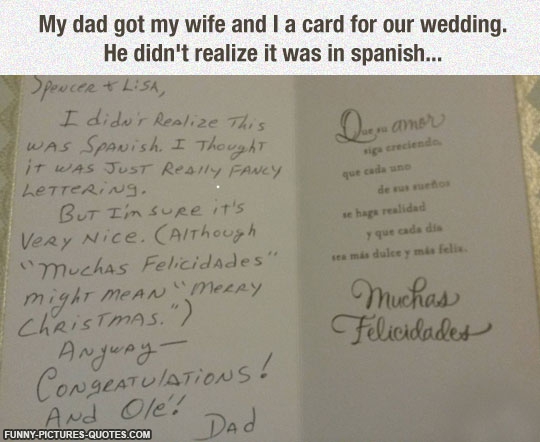 My dad got my wife and I a card for our wedding.
He didn't realize it was in spanish...
Spencer & Lisa,
I didn't Realize This
was Spanish. I Thought
it was Just Really Fancy
Lettering.
But I'm sure it's
Very Nice. (Although
"Muchas Felicidades"
might mean "Merry
Christmas.")
Anyway—
Congratulations!
And Ole'!
Dad
Que su amor
siga creciendo,
que cada uno
de sus sueños
se haga realidad
y que cada día
sea más dulce y más feliz.
Muchas
Felicidades
FUNNY-PICTURES-QUOTES.COM